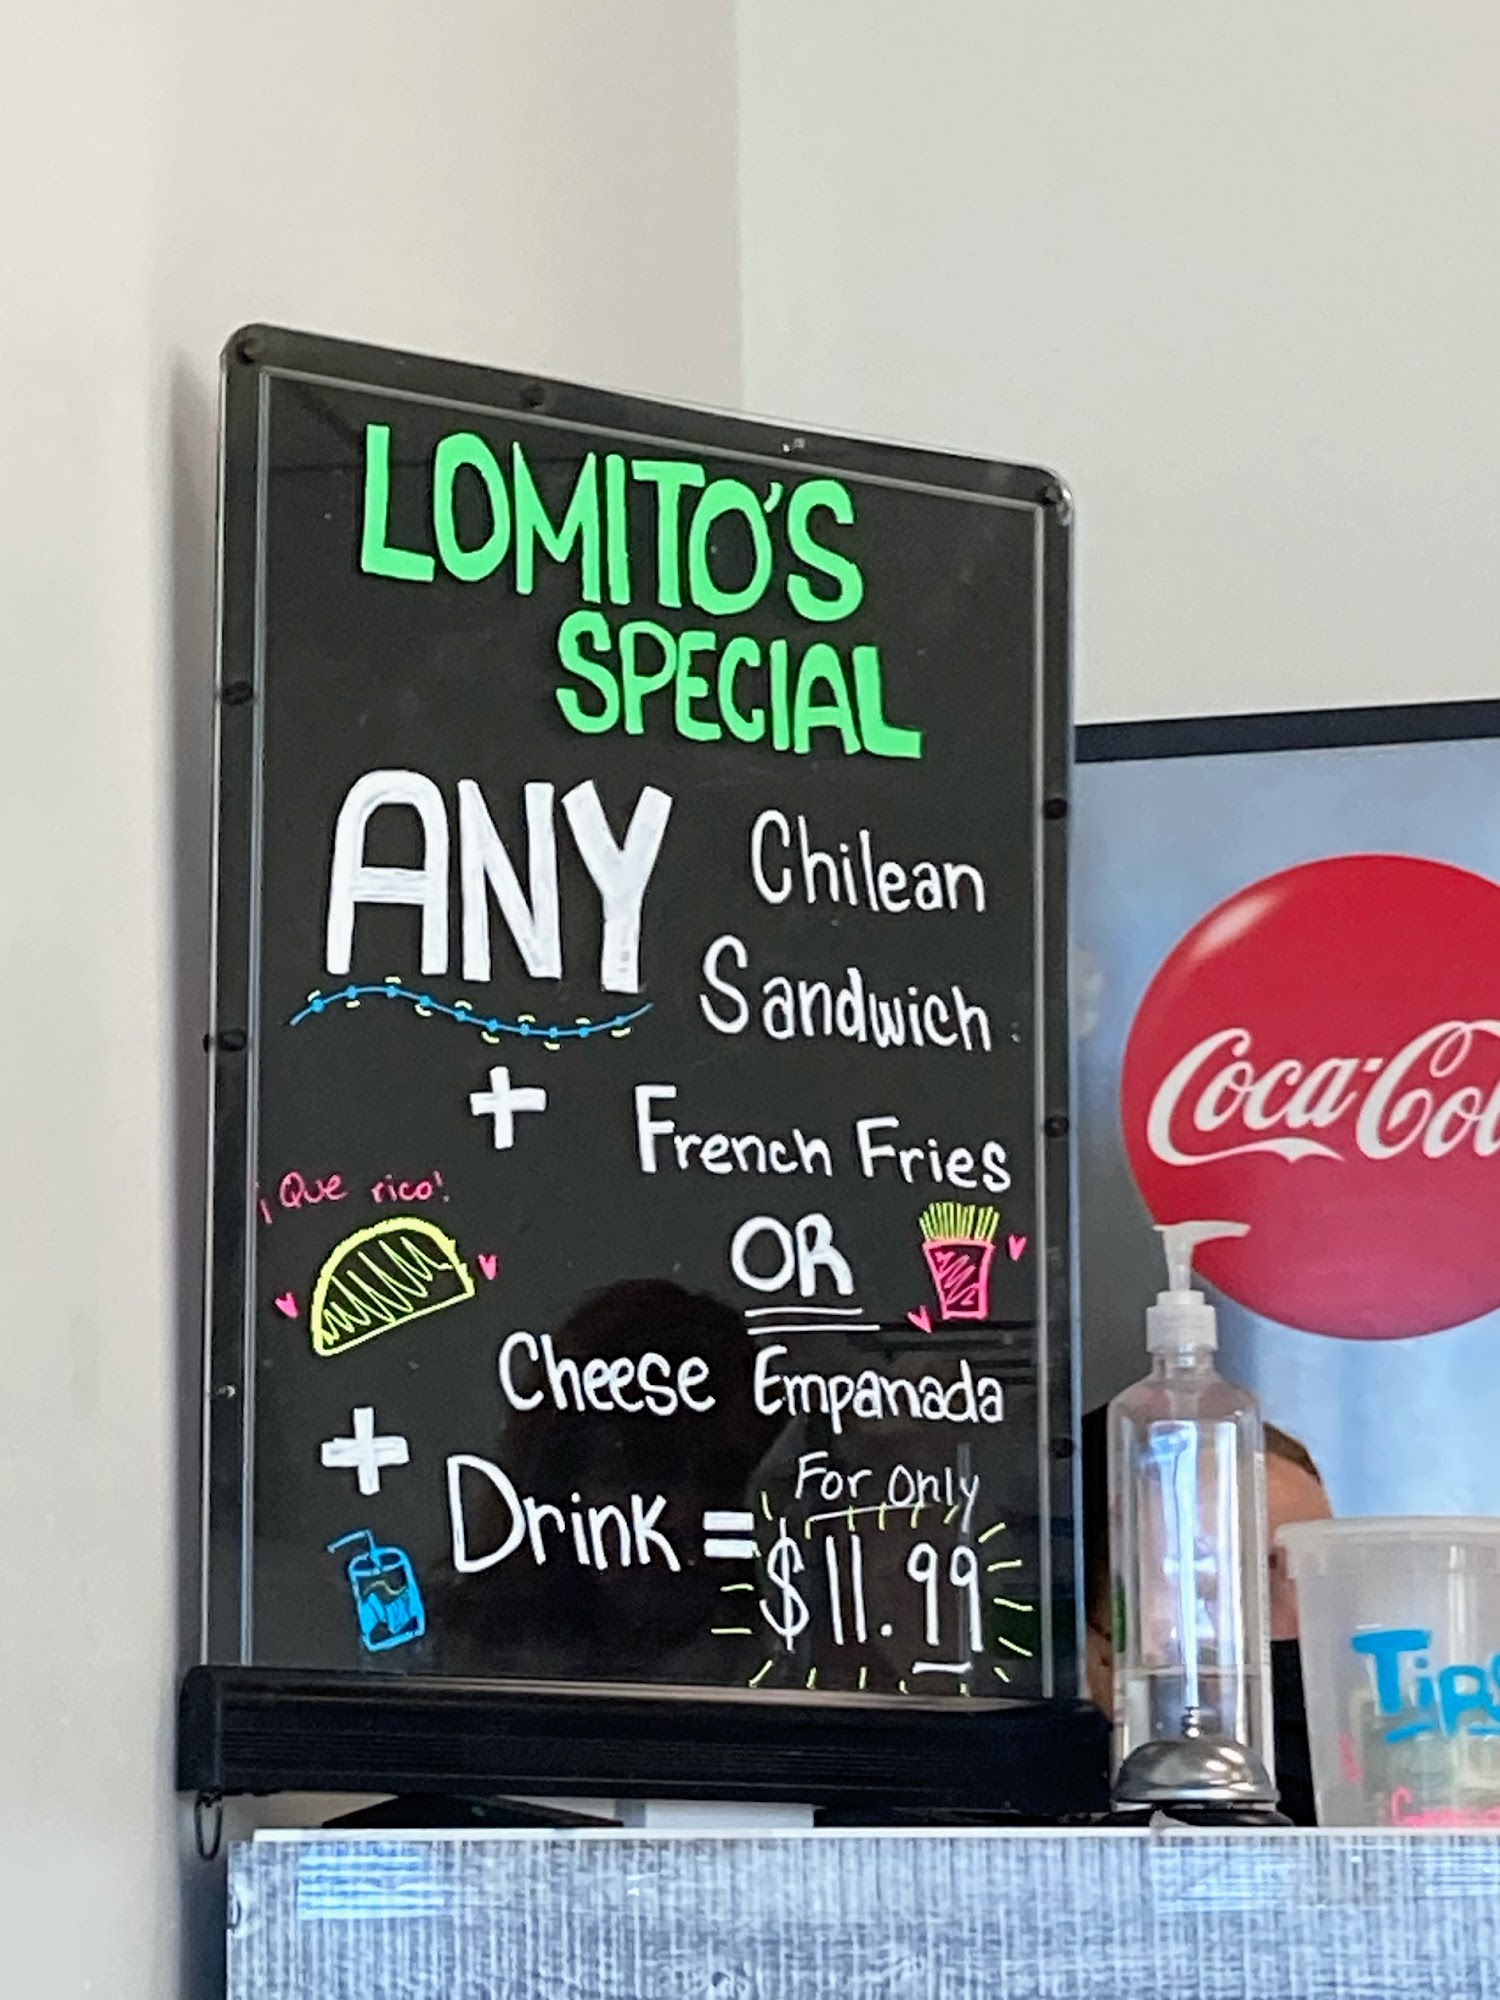 LOMITO'S
SPECIAL
ANY Chilean
Sandwich
+ French Fries
¡Que rico!
OR
Cheese Empanada
+ Drink = For Only
$11.99
Coca-Col
Tips